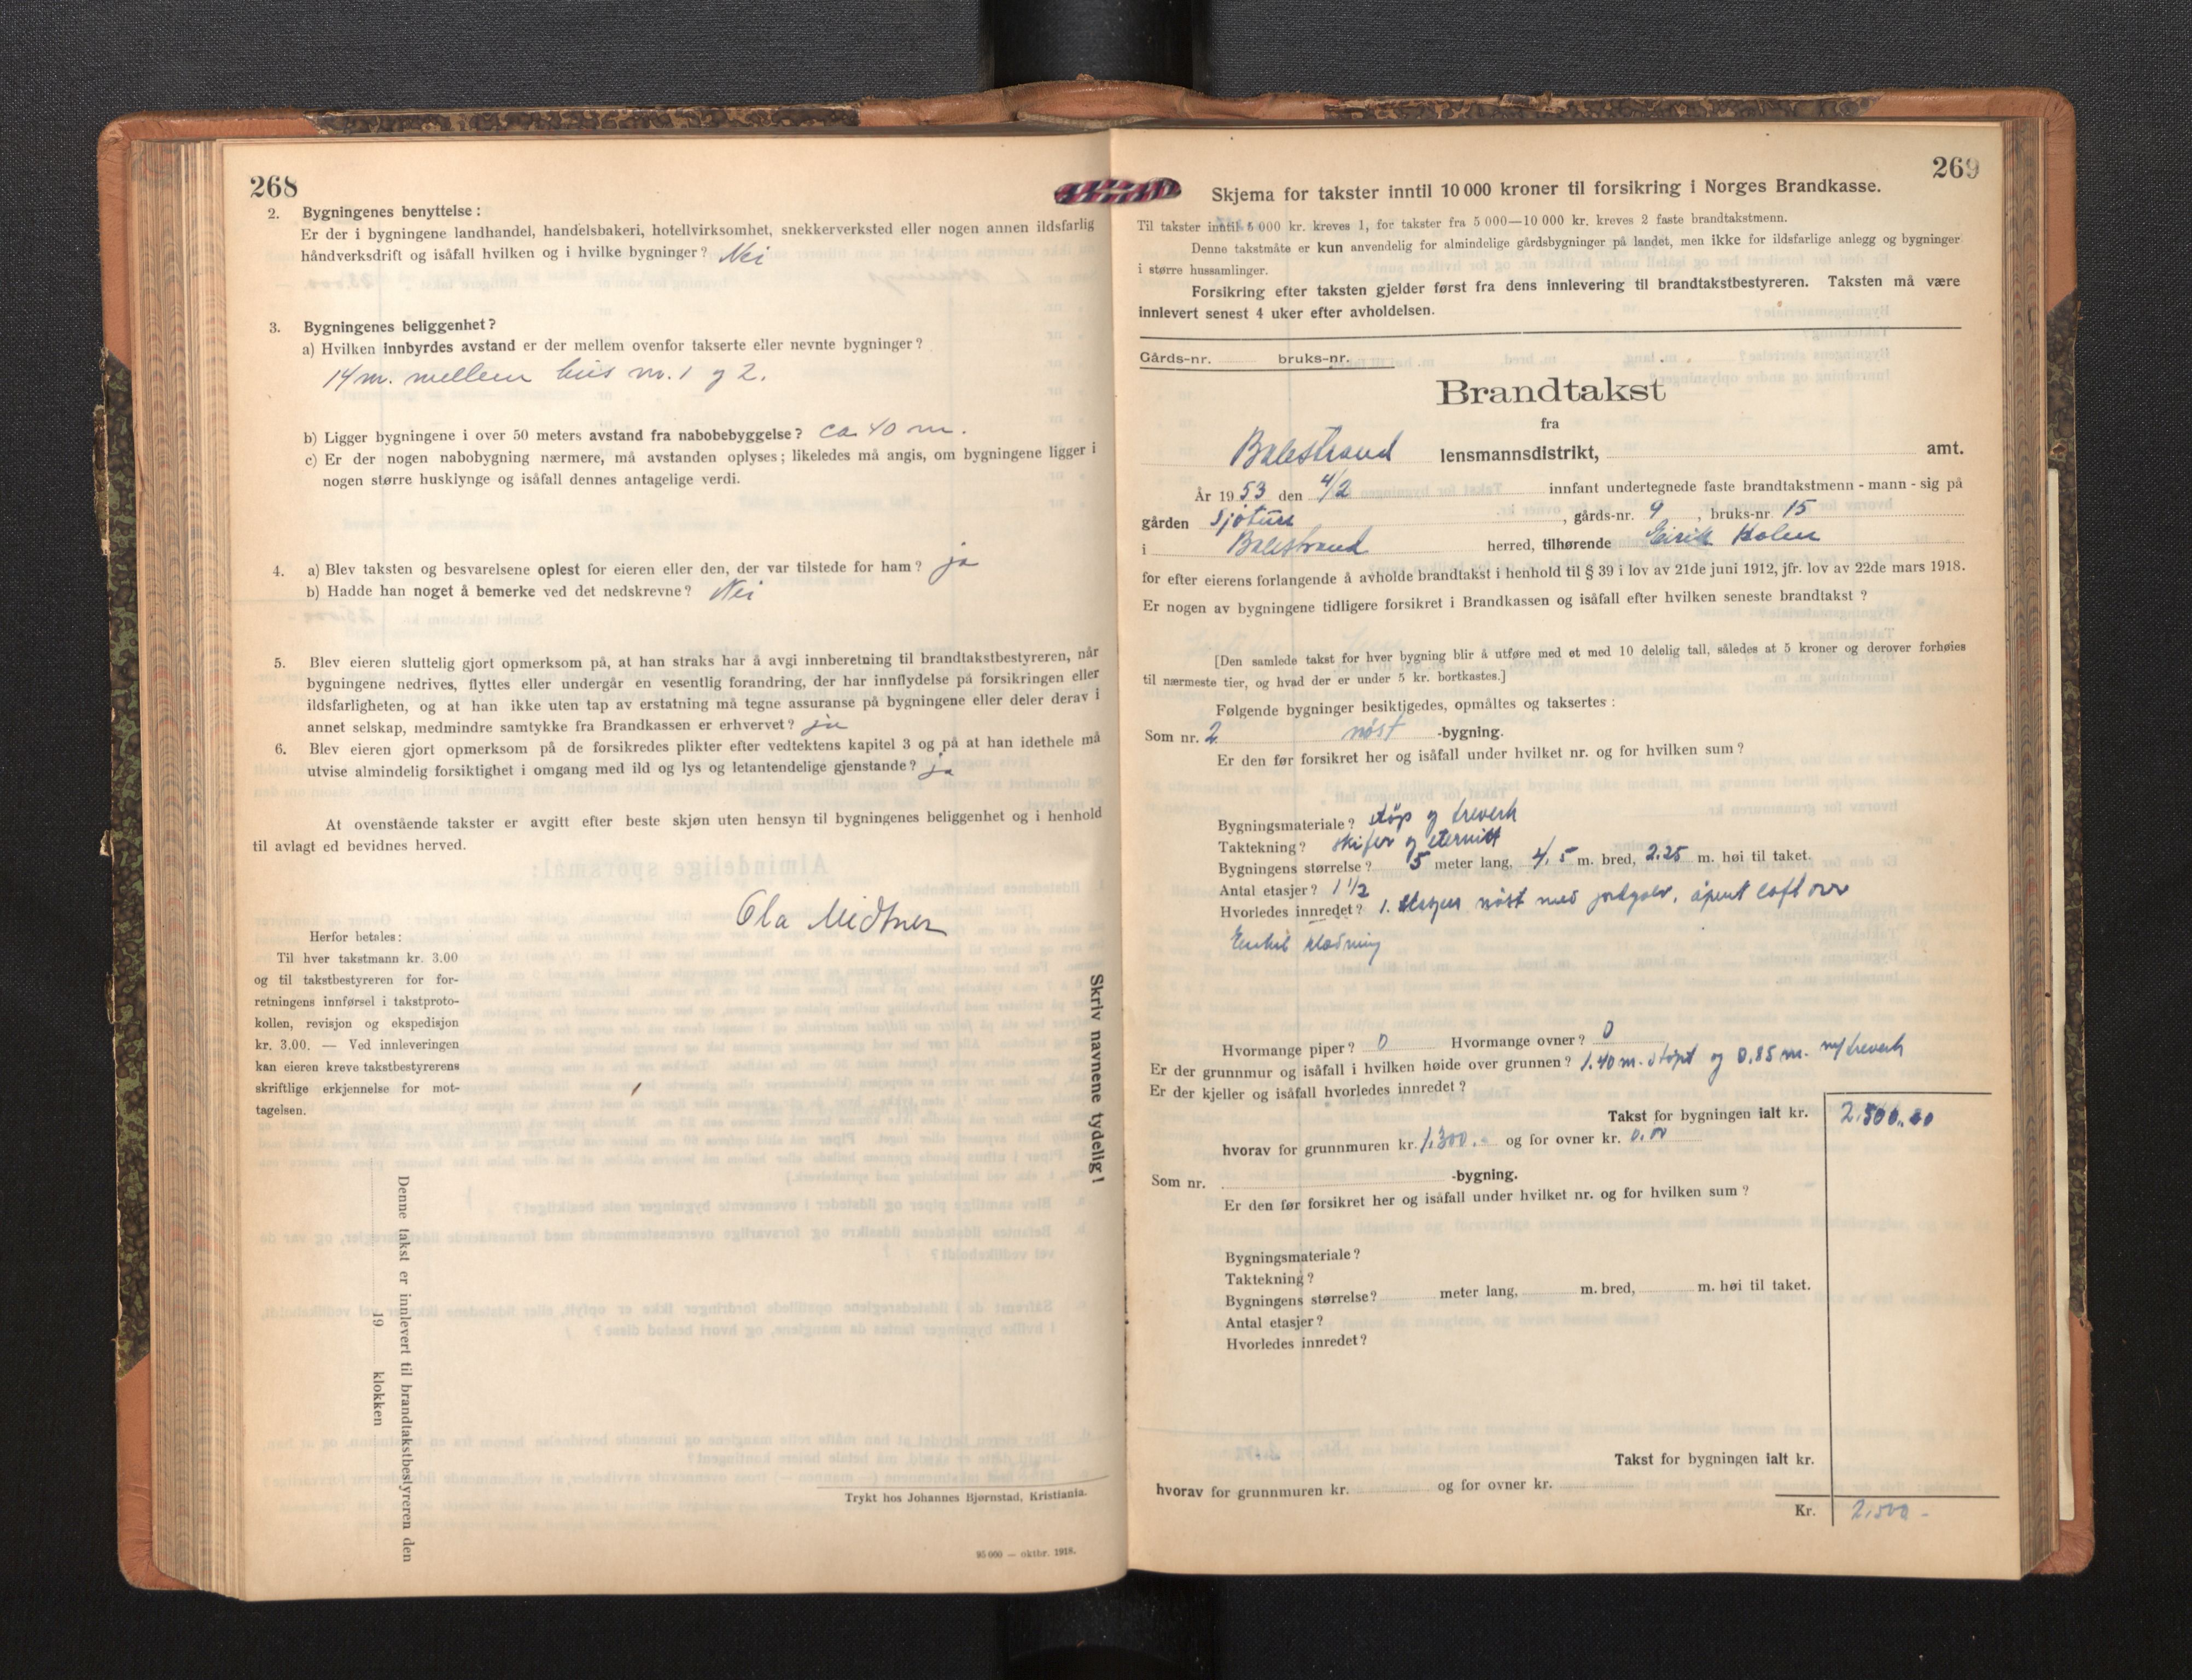 268
2. Bygningenes benyttelse:
Er der i bygningene landhandel, handelsbakeri, hotellvirksomhet, snekkerverksted eller nogen annen ildsfarlig
håndverksdrift og isåfall hvilken og i hvilke bygninger? Nei
3. Bygningenes beliggenhet?
a) Hvilken innbyrdes avstand er der mellem ovenfor takserte eller nevnte bygninger?
14 m. mellem hus nr. 1 og 2.
b) Ligger bygningene i over 50 meters avstand fra nabobebyggelse? ca 40 m.
c) Er der nogen nabobygning nærmere, må avstanden oplyses; likeledes må angis, om bygningene ligger i
nogen større husklynge og isåfall dennes antagelige verdi.
4. a) Blev taksten og besvarelsene oplest for eieren eller den, der var tilstede for ham? ja
b) Hadde han noget å bemerke ved det nedskrevne? Nei
5. Blev eieren sluttelig gjort opmerksom på, at han straks har å avgi innberetning til brandtakstbestyreren, når
bygningene nedrives, flyttes eller undergår en vesentlig forandring, der har innflydelse på forsikringen eller
ildsfarligheten, og at han ikke uten tap av erstatning må tegne assuranse på bygningene eller deler derav i
annet selskap, medmindre samtykke fra Brandkassen er erhvervet? ja
6. Blev eieren gjort opmerksom på de forsikredes plikter efter vedtektens kapitel 3 og på at han idethele må
utvise almindelig forsiktighet i omgang med ild og lys og letantendelige gjenstande? ja
At ovenstående takster er avgitt efter beste skjøn uten hensyn til bygningenes beliggenhet og i henhold
til avlagt ed bevidnes herved.
Ola Midtner
Herfor betales:
Til hver takstmann kr. 3.00
og til takstbestyreren for for-
retningens innførsel i takstproto-
kollen, revisjon og ekspedisjon
kr. 3.00. — Ved innleveringen
kan eieren kreve takstbestyrerens
skriftlige erkjennelse for mot-
tagelsen.
Skriv navnene tydelig!
Denne takst er innlevert til brandtakstbestyreren den
19 klokken
Trykt hos Johannes Bjørnstad, Kristiania.
95 000 — oktbr. 1918.
269
Skjema for takster inntil 10 000 kroner til forsikring i Norges Brandkasse.
Til takster inntil 5 000 kr. kreves 1, for takster fra 5 000—10 000 kr. kreves 2 faste brandtakstmenn.
Denne takstmåte er kun anvendelig for almindelige gårdsbygninger på landet, men ikke for ildsfarlige anlegg og bygninger
i større hussamlinger.
Forsikring efter taksten gjelder først fra dens innlevering til brandtakstbestyreren. Taksten må være
innlevert senest 4 uker efter avholdelsen.
Gårds-nr. bruks-nr.
Brandtakst
fra
Balestrand lensmannsdistrikt, amt.
År 1953 den 4/2 innfant undertegnede faste brandtakstmenn - mann - sig på
gården Sjøtun, gårds-nr. 9, bruks-nr. 15
i Balestrand herred, tilhørende Eirik Holen
for efter eierens forlangende å avholde brandtakst i henhold til § 39 i lov av 21de juni 1912, jfr. lov av 22de mars 1918.
Er nogen av bygningene tidligere forsikret i Brandkassen og isåfall efter hvilken seneste brandtakst?
[Den samlede takst for hver bygning blir å utføre med et med 10 delelig tall, således at 5 kroner og derover forhøies
til nærmeste tier, og hvad der er under 5 kr. bortkastes.]
Følgende bygninger besiktigedes, opmåltes og taksertes:
Som nr. 2 nøst -bygning.
Er den før forsikret her og isåfall under hvilket nr. og for hvilken sum?
Bygningsmateriale? støp og treverk
Taktekning? skifer og eternitt
Bygningens størrelse? 5 meter lang, 4,5 m. bred, 2.25 m. høi til taket.
Antal etasjer? 1 1/2
Hvorledes innredet? 1. etasjen nøst med jordgolv, åpent loft over
Enkel kledning
Hvormange piper? 0 Hvormange ovner? 0
Er der grunnmur og isåfall i hvilken høide over grunnen? 1.40 m. støpt og 0,85 m. m/treverk
Er der kjeller og isåfall hvorledes innredet?
Takst for bygningen ialt kr. 2.500.00
hvorav for grunnmuren kr. 1.300.- og for ovner kr. 0.00
Som nr. -bygning.
Er den før forsikret her og isåfall under hvilket nr. og for hvilken sum?
Bygningsmateriale?
Taktekning?
Bygningens størrelse? meter lang, m. bred, m. høi til taket.
Antal etasjer?
Hvorledes innredet?
Takst for bygningen ialt kr.
hvorav for grunnmuren kr. og for ovner kr.
Kr. 2.500 -